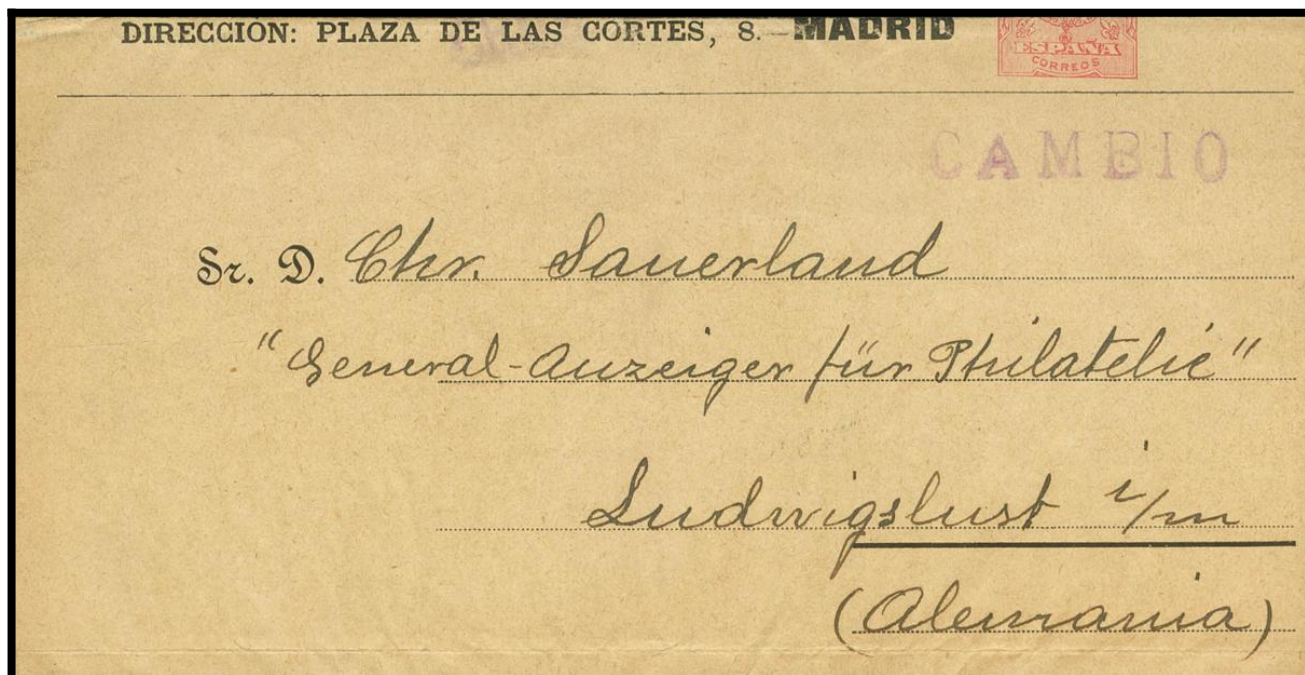 DIRECCIÓN: PLAZA DE LAS CORTES, 8.—MADRID
ESPAÑA
CORREOS
CAMBIO
Sr. D. Chr. Sauerland
"General-Anzeiger für Philatelie"
Ludwigslust i/m
(Alemania)